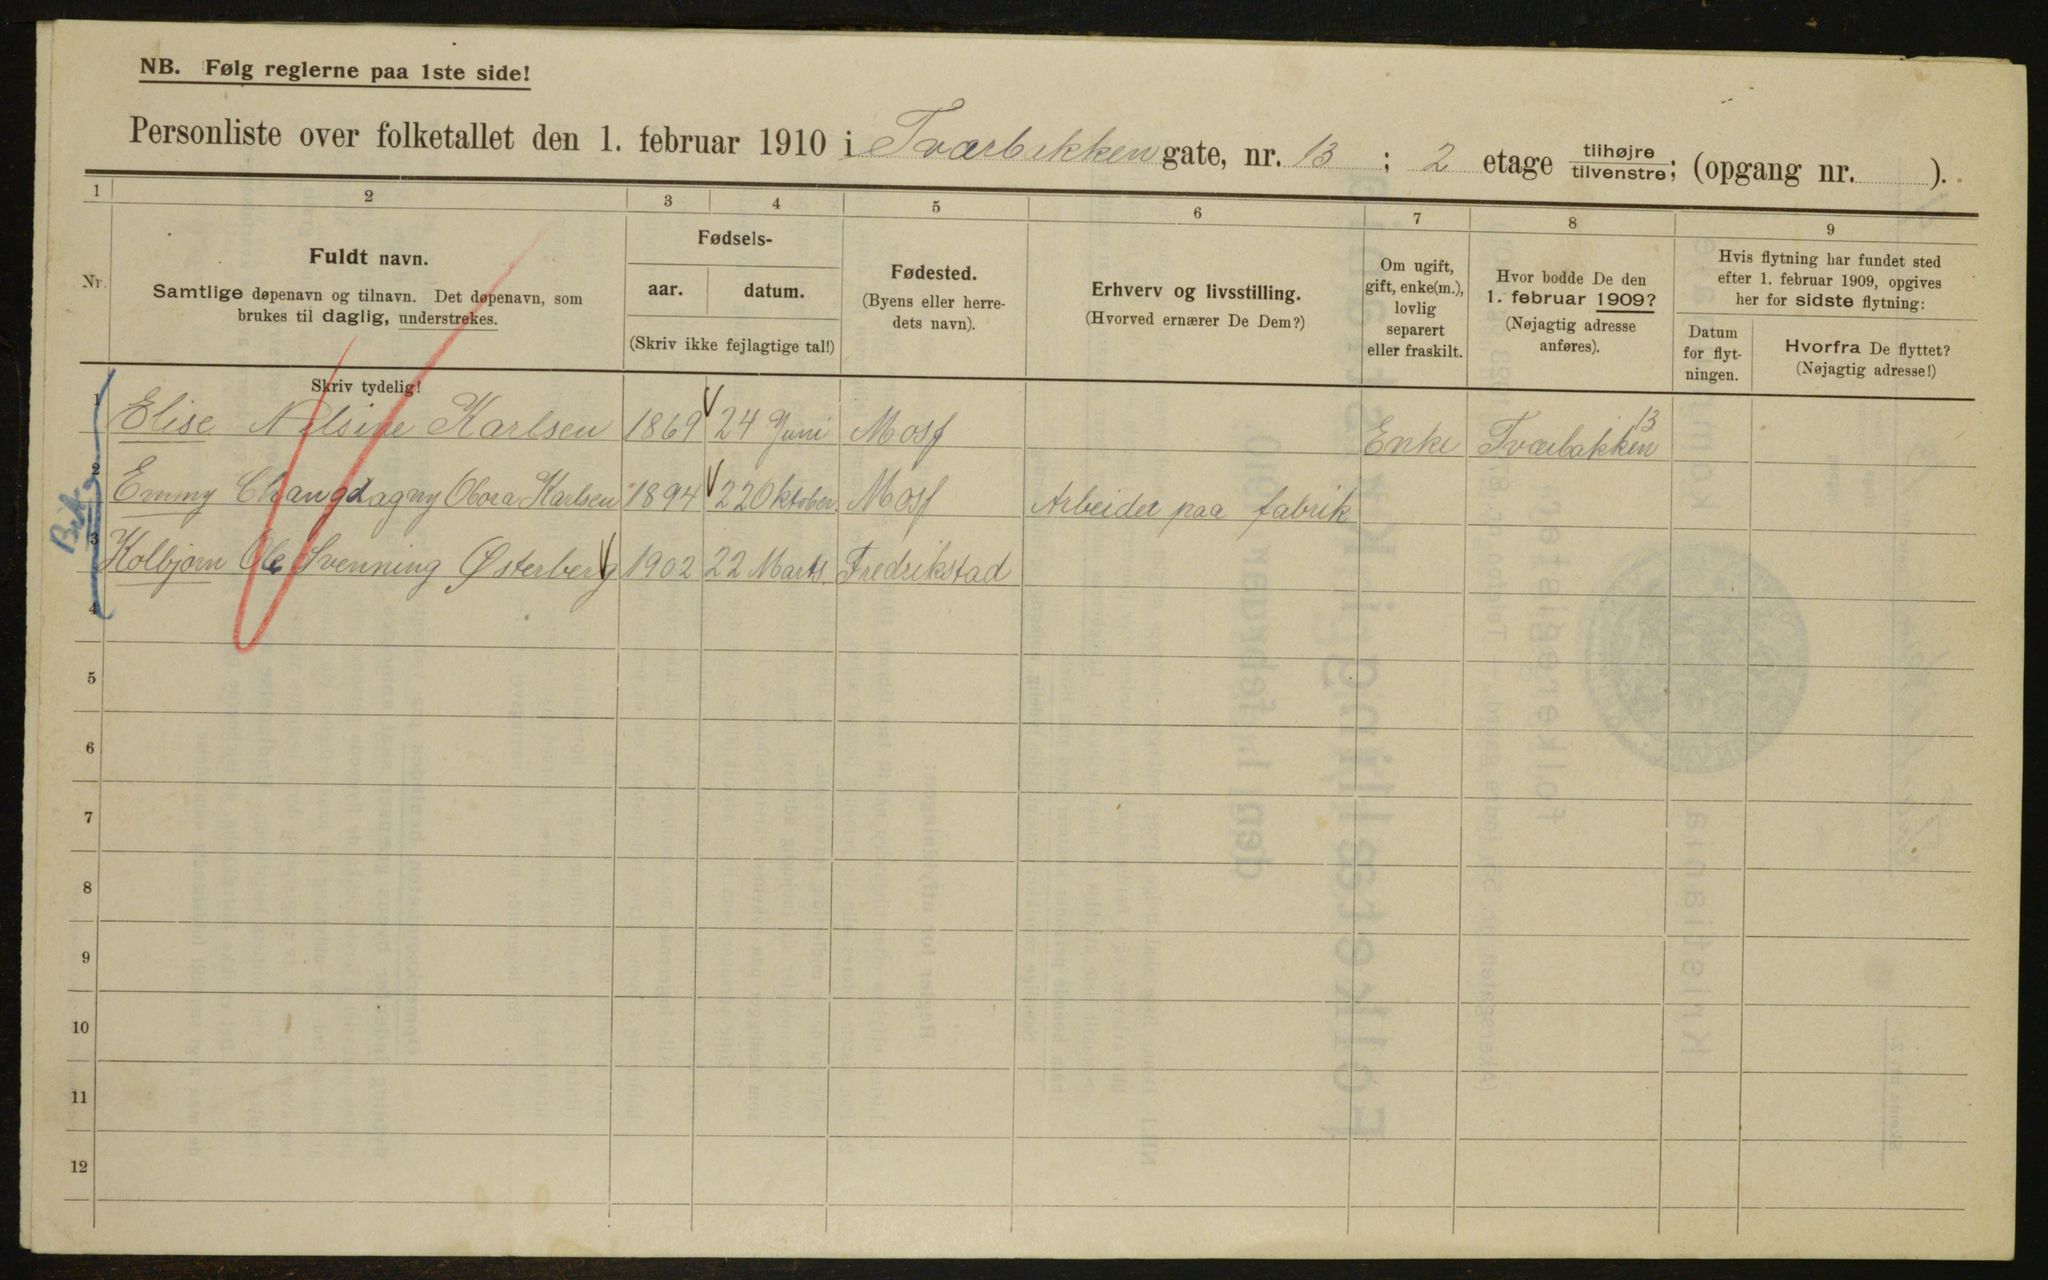 NB. Følg reglerne paa 1ste side!
Personliste over folketallet den 1. februar 1910 i Tværbakken gate, nr. 13 ; 2 etage tilhøjre tilvenstre; (opgang nr. ).
1 2 3 4 5 6 7 8 9
Nr.
Fuldt navn.
Samtlige døpenavn og tilnavn. Det døpenavn, som
brukes til daglig, understrekes.
Skriv tydelig!
Fødsels-
aar. datum.
(Skriv ikke fejlagtige tal!)
Fødested.
(Byens eller herre-
dets navn).
Erhverv og livsstilling.
(Hvorved ernærer De Dem?)
Om ugift,
gift, enke(m.),
lovlig
separert
eller fraskilt.
Hvor bodde De den
1. februar 1909?
(Nøjagtig adresse
anføres).
Hvis flytning har fundet sted
efter 1. februar 1909, opgives
her for sidste flytning:
Datum
for flyt-
ningen.
Hvorfra De flyttet?
(Nøjagtig adresse!)
1 Elise Nilsine Karlsen 1869 24 Juni Moss Enke Tværbakken 13
2 Emmy Karlsen 1894 22 Oktober Moss Arbeider paa fabrik
3 Kolbjørn Ole Svenning Østerberg 1902 22 Marts Fredrikstad
4
5
6
7
8
9
10
11
12